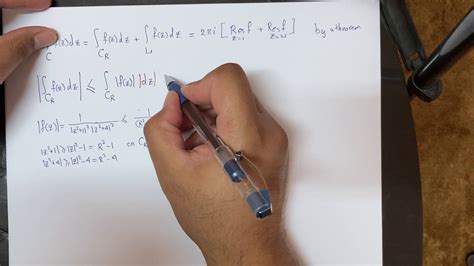 ∫_C f(z)dz = ∫_{C_R} f(z)dz + ∫_{L_1} f(z)dz = 2πi [ Res_{z=i} f + Res_{z=2i} f ] by a theorem
|∫_{C_R} f(z)dz| ≤ ∫_{C_R} |f(z)| |dz|
|f(z)| = 1/(|z²+1| |z²+4|²) ≤ 1/(R²
|z²+1| ≥ |z|²-1 = R²-1 on C_R
|z²+4| ≥ |z|²-4 = R²-4